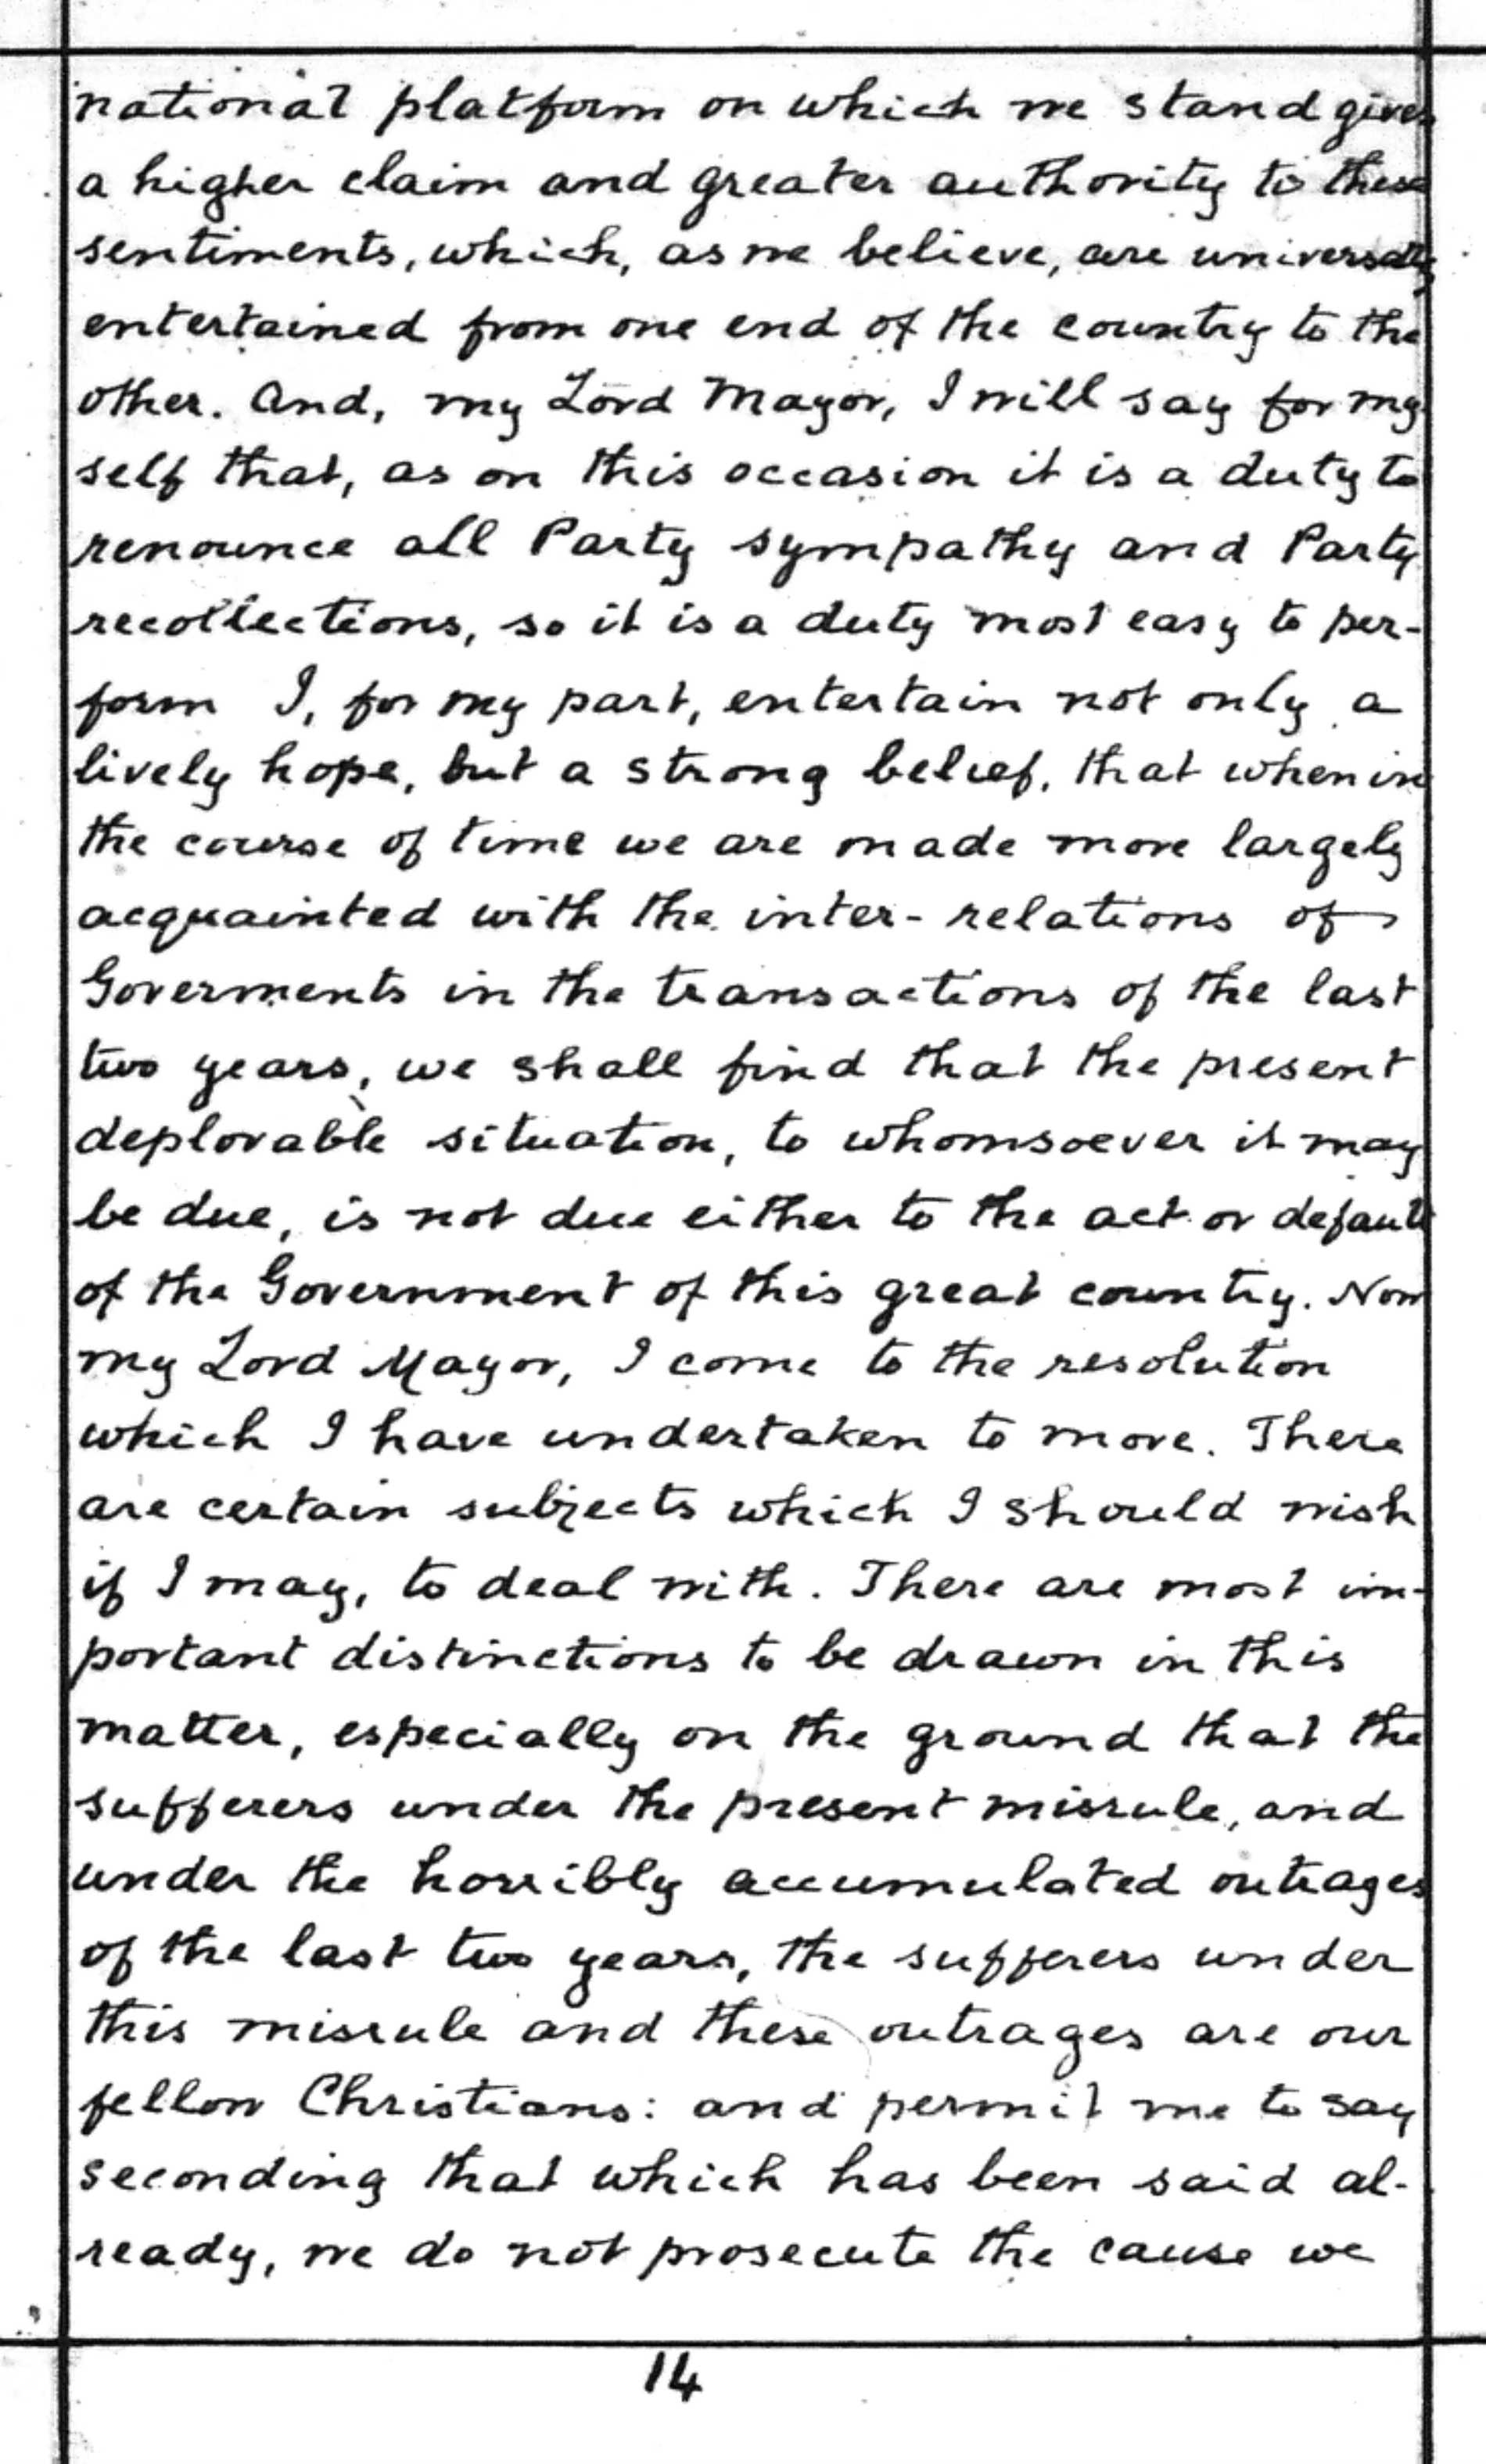 national platform on which we stand gives
a higher claim and greater authority to these
sentiments, which, as we believe, are universally
entertained from one end of the country to the
other. And, my Lord Mayor, I will say for my
self that, as on this occasion it is a duty to
renounce all Party sympathy and Party
recollections, so it is a duty most easy to per-
form I, for my part, entertain not only a
lively hope, but a strong belief, that when in
the course of time we are made more largely
acquainted with the inter-relations of
Goverments in the transactions of the last
two years, we shall find that the present
deplorable situation, to whomsoever it may
be due, is not due either to the act or default
of the Government of this great country. Now
my Lord Mayor, I come to the resolution
which I have undertaken to move. There
are certain subjects which I should wish
if I may, to deal with. There are most im-
portant distinctions to be drawn in this
matter, especially on the ground that the
sufferers under the present misrule, and
under the horribly accumulated outrages
of the last two years, the sufferers under
this misrule and these outrages are our
fellow Christians: and permit me to say
seconding that which has been said al-
ready, we do not prosecute the cause we
14